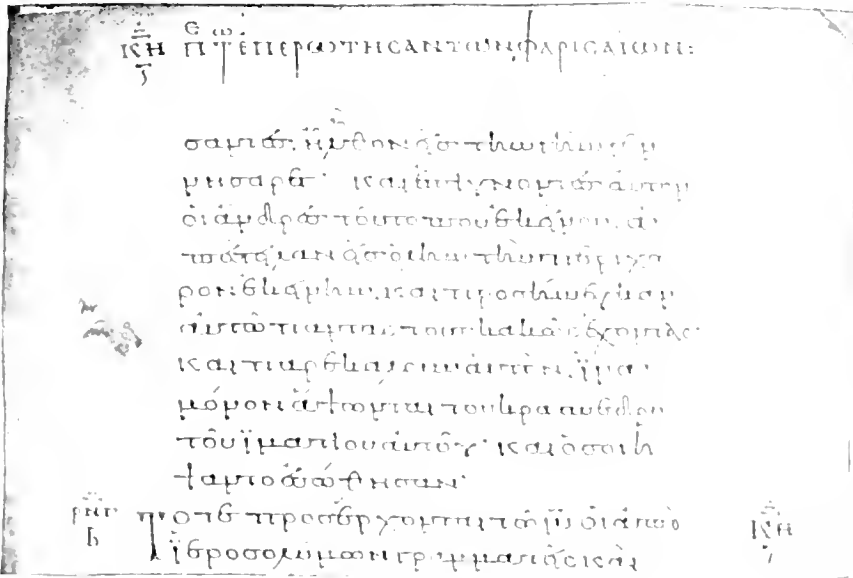 ΚΗ Π ΤΕΠΕΡΩΤΗΣΑΝΤΩΝ ΦΑΡΙΣΑΙΩΝ:
σαντες. ἦλθον εἰς τὴν γῆν γεν
νησαρετ· καὶ ἐπιγνόντες αὐτὸν
οἱ ἄνδρες τοῦ τόπου ἐκείνου. ἀ
πέστειλαν εἰς ὅλην τὴν περίχω
ρον ἐκείνην. καὶ προσήνεγκαν
αὐτῶ πάντας τοὺς κακῶς ἔχοντας·
καὶ παρεκάλουν αὐτὸν. ἵνα
μόνον ἅψωνται τοῦ κρασπέδου
τοῦ ἱματίου αὐτοῦ· καὶ ὅσοι ἥ
ψαντο ἐσώθησαν·
ρνγ Τότε προσέρχονται τῶ ιυ οἱ ἀπὸ ΚΗ
ἱεροσολύμων γραμματεῖς καὶ